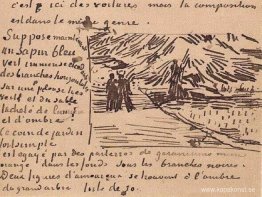 c'est ici des voitures mais la composition
est dans le même genre.
Suppose maintenant
un sapin bleu
vert immense
des branches horizontales
sur une pelouse très
verte et du sable
tacheté de lumière
et d'ombre.
Ce coin de jardin
fort simple
est égayé par des parterres de geraniums mine
orange dans les fonds sous les branches noires.
Deux figures d'amoureux se trouvent à l'ombre
du grand arbre toile de 30.
www.kopiakonst.se